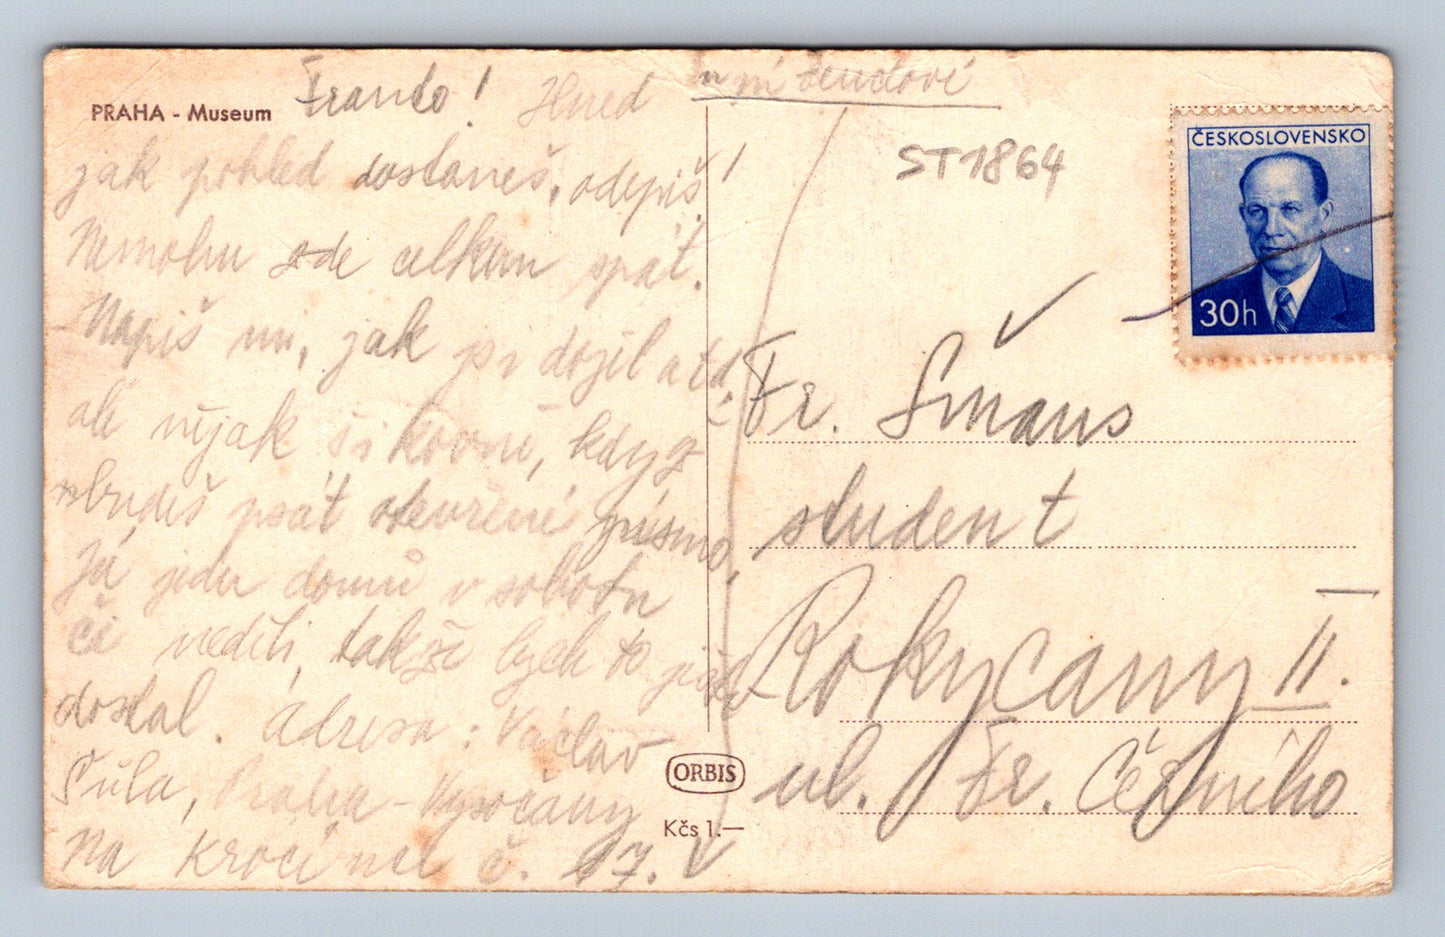 PRAHA - Museum
Franto! Hned
jak pohled dostaneš, odepiš!
Nemohu zde celkem spát.
Napiš mi, jak jsi dojel atd.
ale nějak šikovně, když
budeš psát otevřené písmo,
Já jedu domů v sobotu
či neděli, takže bych to již
dostal. Adresa: Václav
Šůla, Praha - Vysočany
Na Krocínce č. 17.
ST1864
ČESKOSLOVENSKO
30h
Fr. Šmaus
student
Rokycany II.
ul. Fr.
ORBIS
Kčs 1.—